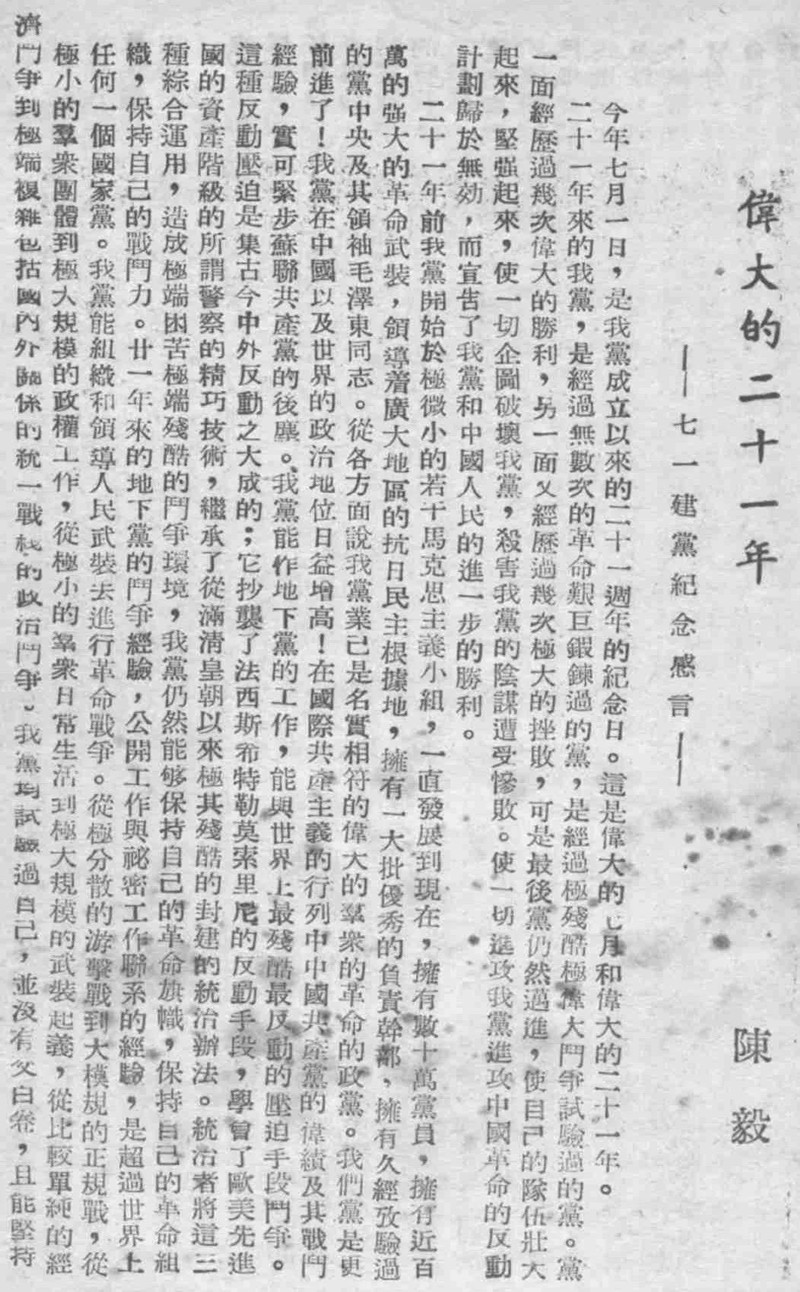 偉大的二十一年
——七一建黨紀念感言——
陳毅
今年七月一日，是我黨成立以來的二十一週年的紀念日。這是偉大的七月和偉大的二十一年。
二十一年來的我黨，是經過無數次的革命艱巨鍛鍊過的黨，是經過極殘酷極偉大鬥爭試驗過的黨。黨
一面經歷過幾次偉大的勝利，另一面又經歷過幾次極大的挫敗，可是最後黨仍然邁進，使自己的隊伍壯大
起來，堅强起來，使一切企圖破壞我黨，殺害我黨的陰謀遭受慘敗。使一切進攻我黨進攻中國革命的反動
計劃歸於無効，而宣告了我黨和中國人民的進一步的勝利。
二十一年前我黨開始於極微小的若干馬克思主義小組，一直發展到現在，擁有數十萬黨員，擁有近百
萬的强大的革命武裝，領導着廣大地區的抗日民主根據地，擁有一大批優秀的負責幹部、擁有久經攷驗過
的黨中央及其領袖毛澤東同志。從各方面說我黨業已是名實相符的偉大的羣衆的革命的政黨。我們黨是更
前進了！我黨在中國以及世界的政治地位日益增高！在國際共產主義的行列中中國共產黨的偉績及其戰鬥
經驗，實可緊步蘇聯共產黨的後塵。我黨能作地下黨的工作，能與世界上最殘酷最反動的壓迫手段鬥爭。
這種反動壓迫是集古今中外反動之大成的；它抄襲了法西斯希特勒莫索里尼的反動手段，學會了歐美先進
國的資產階級的所謂警察的精巧技術，繼承了從滿清皇朝以來極其殘酷的封建的統治辦法。統治者將這三
種綜合運用，造成極端困苦極端殘酷的鬥爭環境，我黨仍然能够保持自己的革命旗幟，保持自己的革命組
織，保持自己的戰鬥力。廿一年來的地下黨的鬥爭經驗，公開工作與祕密工作聯系的經驗，是超過世界上
任何一個國家黨。我黨能組織和領導人民武裝去進行革命戰爭。從極分散的游擊戰到大模規的正規戰，從
極小的羣衆團體到極大規模的政權工作，從極小的羣衆日常生活到極大規模的武裝起義，從比較單純的經
濟鬥爭到極端複雜包括國內外關係的統一戰綫的政治鬥爭。我黨均試驗過自己，並沒有交白卷，且能堅持